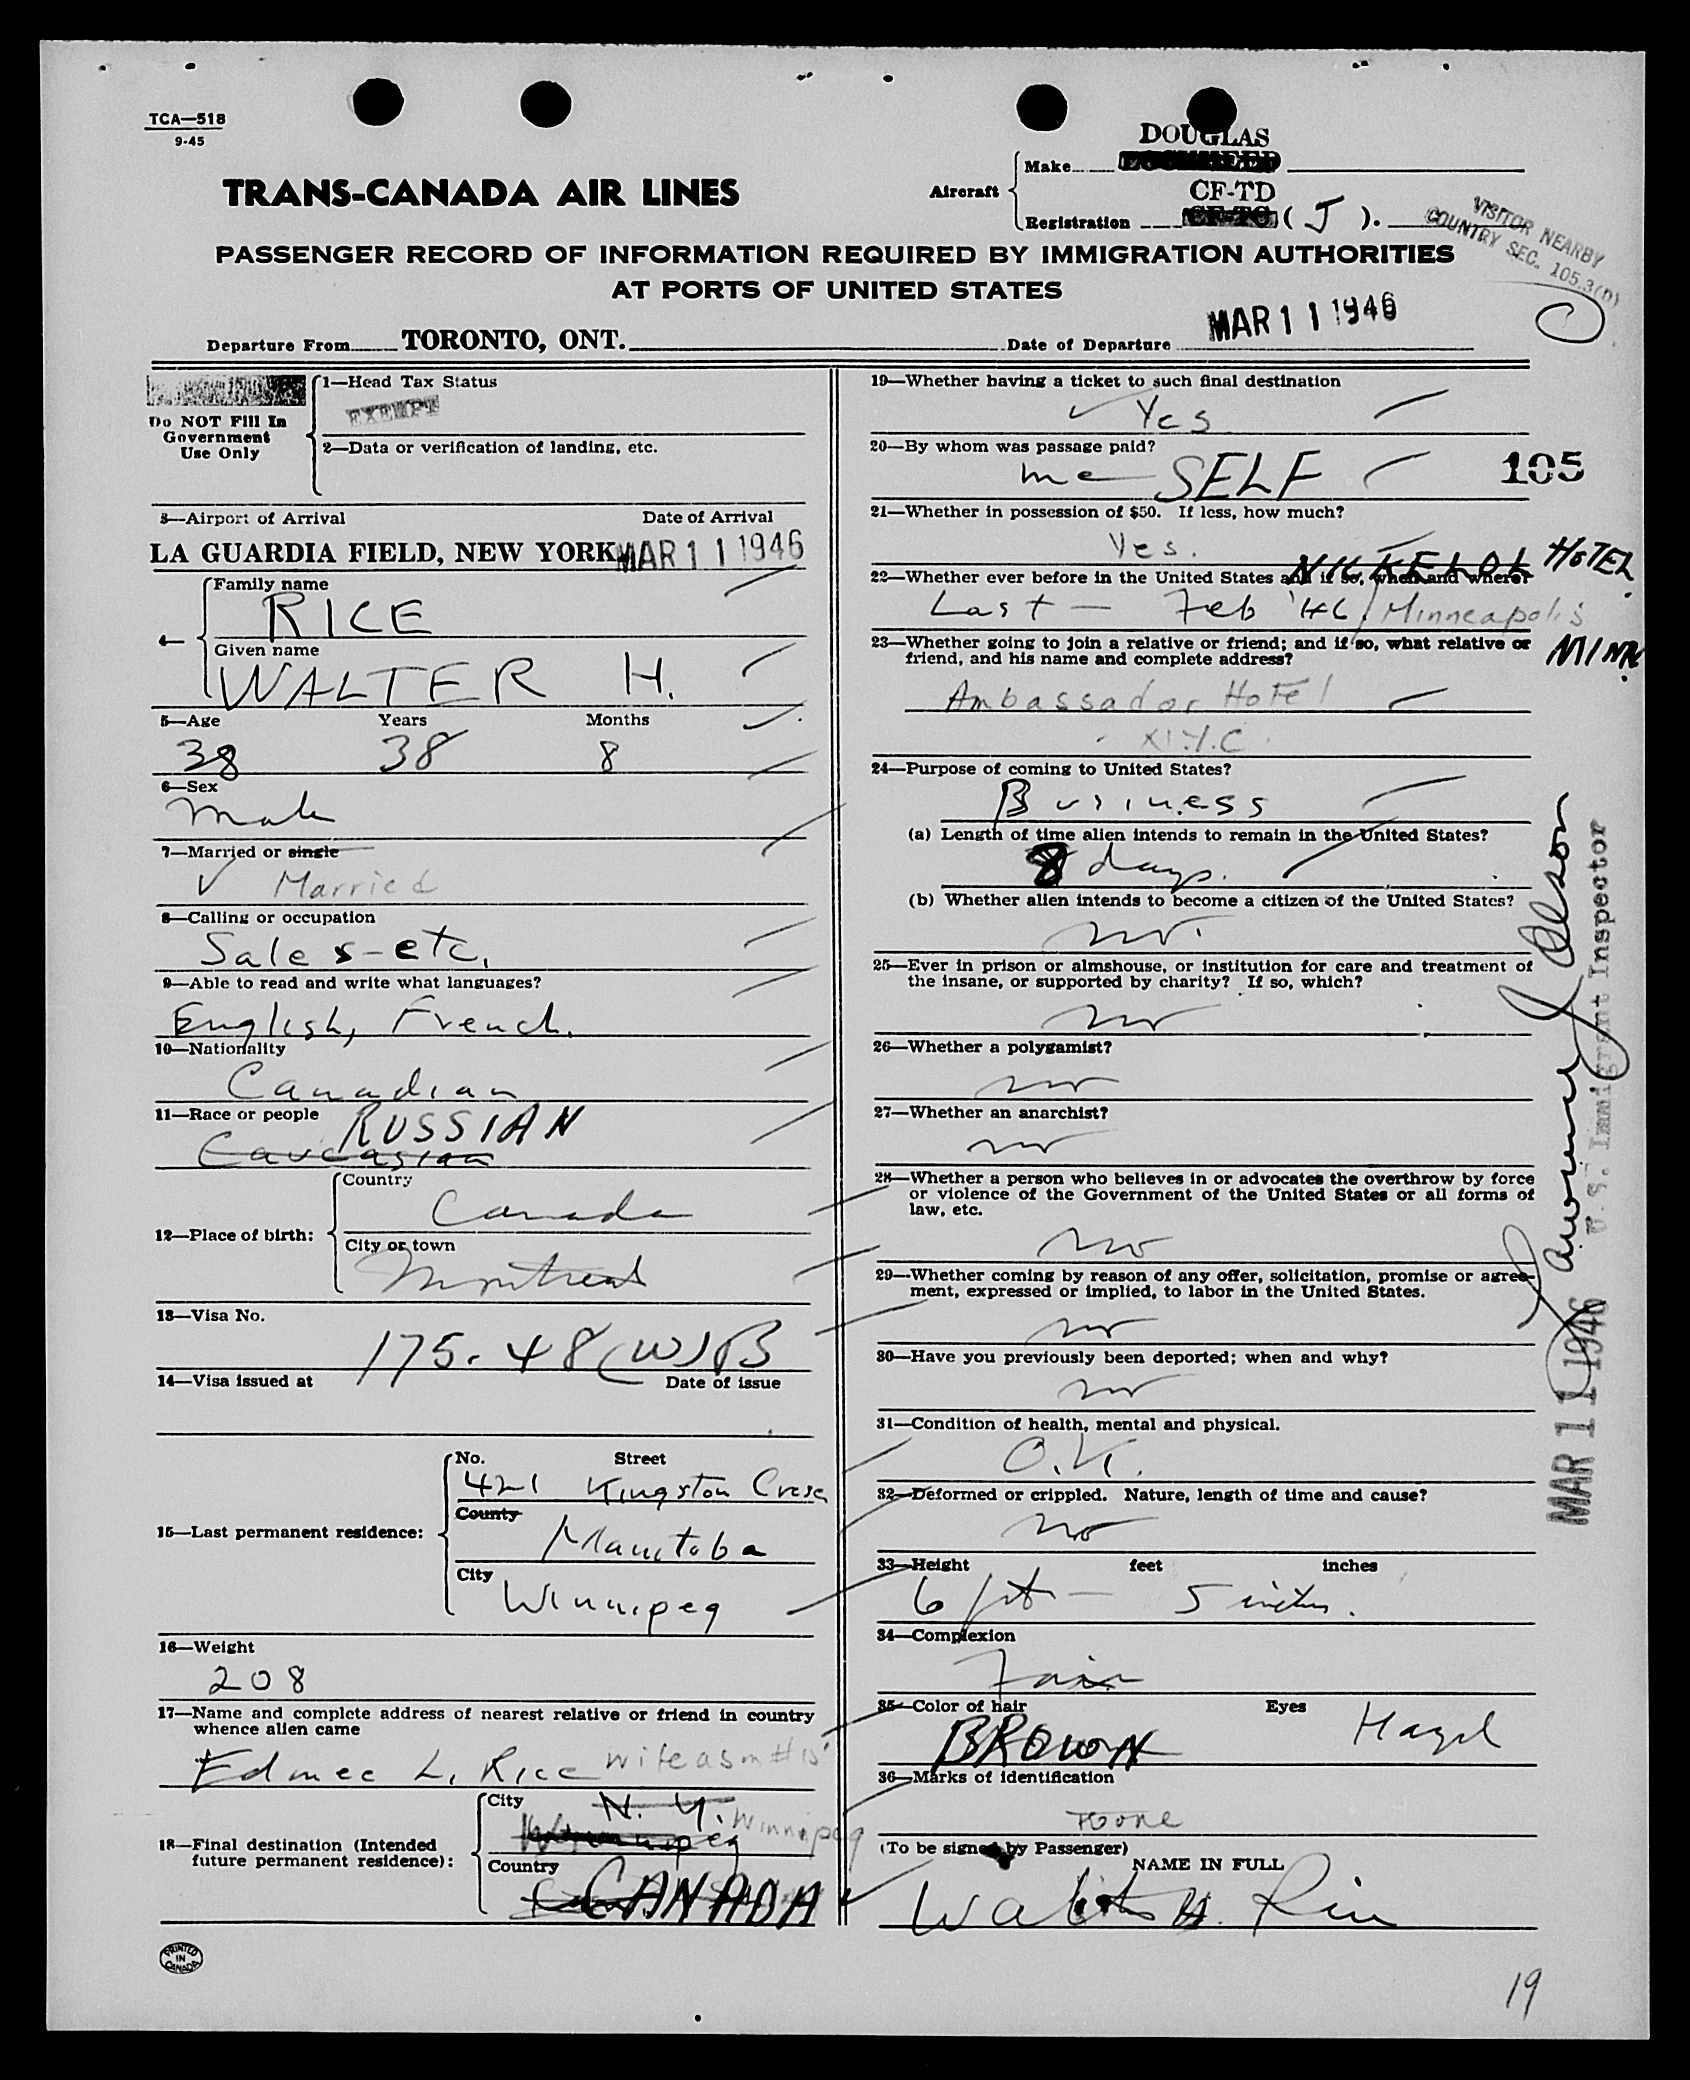 TCA—518
9-45
DOUGLAS
Make
TRANS-CANADA AIR LINES
Aircraft
CF-TD
Registration CF-TC ( J ).
VISITOR NEARBY
COUNTRY SEC. 105.3(n)
PASSENGER RECORD OF INFORMATION REQUIRED BY IMMIGRATION AUTHORITIES
AT PORTS OF UNITED STATES
Departure From TORONTO, ONT.
Date of Departure MAR 11 1946
Do NOT Fill In
Government
Use Only
1—Head Tax Status
EXEMPT
2—Data or verification of landing, etc.
3—Airport of Arrival Date of Arrival
LA GUARDIA FIELD, NEW YORK MAR 11 1946
4—
Family name
RICE
Given name
WALTER H.
5—Age Years Months
38 38 8
6—Sex
Male
7—Married or single
Married
8—Calling or occupation
Sales-etc.
9—Able to read and write what languages?
English, French.
10—Nationality
Canadian
11—Race or people RUSSIAN
Caucasian
12—Place of birth:
Country
Canada
City or town
Montreal
13—Visa No.
175.48(W)B
14—Visa issued at Date of issue
15—Last permanent residence:
No. Street
421 Kingston Cresc
County
Manitoba
City
Winnipeg
16—Weight
208
17—Name and complete address of nearest relative or friend in country
whence alien came
Edmee L. Rice wife as in #15
18—Final destination (Intended
future permanent residence):
City N.Y.
Winnipeg Winnipeg
Country
CANADA
PRINTED
IN
CANADA
19—Whether having a ticket to such final destination
Yes
20—By whom was passage paid?
me SELF
105
21—Whether in possession of $50. If less, how much?
Yes.
22—Whether ever before in the United States and if so, when and where?
NICKELOL HOTEL
Last — Feb '46 / Minneapolis
MINN.
23—Whether going to join a relative or friend; and if so, what relative or
friend, and his name and complete address?
Ambassador Hotel
N.Y.C.
24—Purpose of coming to United States?
Business
(a) Length of time alien intends to remain in the United States?
8 days.
(b) Whether alien intends to become a citizen of the United States?
no.
25—Ever in prison or almshouse, or institution for care and treatment of
the insane, or supported by charity? If so, which?
no
26—Whether a polygamist?
no
27—Whether an anarchist?
no
28—Whether a person who believes in or advocates the overthrow by force
or violence of the Government of the United States or all forms of
law, etc.
no
29—Whether coming by reason of any offer, solicitation, promise or agree-
ment, expressed or implied, to labor in the United States.
no
30—Have you previously been deported; when and why?
no
31—Condition of health, mental and physical.
O.K.
32—Deformed or crippled. Nature, length of time and cause?
no
33—Height feet inches
6 ft — 5 inches.
34—Complexion
Fair
35—Color of hair Eyes
BROWN Hazel
36—Marks of identification
none
(To be signed by Passenger)
NAME IN FULL
Walter H. Rice
Olson
U.S. Immigrant Inspector
MAR 11 1946
19